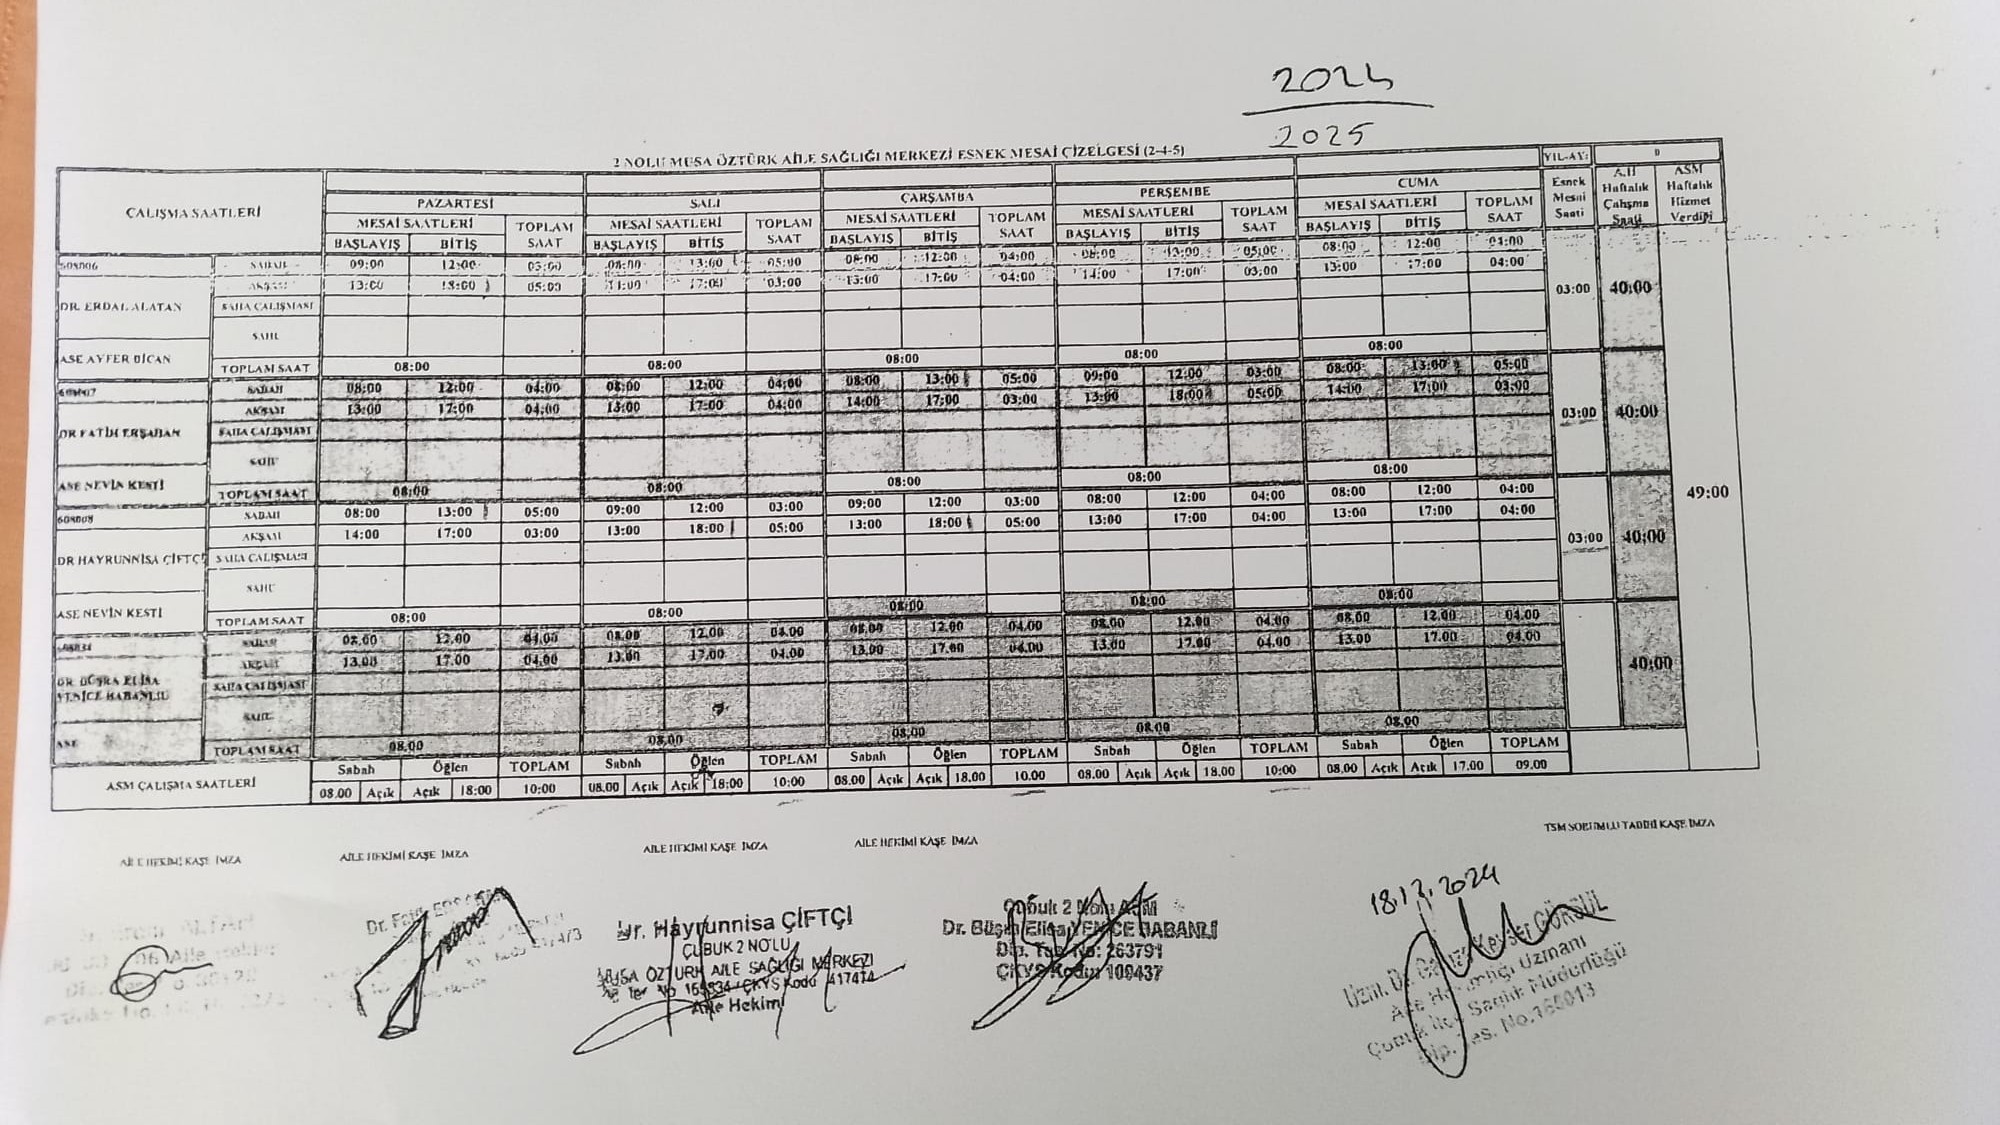 2024
2025
2 NOLU MUSA ÖZTÜRK AİLE SAĞLIĞI MERKEZİ ESNEK MESAİ ÇİZELGESİ (2-4-5)
YIL-AY: 0
ÇALIŞMA SAATLERİ PAZARTESİ SALI ÇARŞAMBA PERŞEMBE CUMA Esnek Mesai Saati A.H Haftalık Çalışma Saati ASM Haftalık Hizmet Verdiği
MESAİ SAATLERİ TOPLAM SAAT MESAİ SAATLERİ TOPLAM SAAT MESAİ SAATLERİ TOPLAM SAAT MESAİ SAATLERİ TOPLAM SAAT MESAİ SAATLERİ TOPLAM SAAT
BAŞLAYIŞ BİTİŞ BAŞLAYIŞ BİTİŞ BAŞLAYIŞ BİTİŞ BAŞLAYIŞ BİTİŞ BAŞLAYIŞ BİTİŞ
SABAH 09:00 12:00 03:00 08:00 13:00 05:00 08:00 12:00 04:00 08:00 13:00 05:00 08:00 12:00 04:00
AKŞAM 13:00 18:00 05:00 14:00 17:00 03:00 13:00 17:00 04:00 14:00 17:00 03:00 13:00 17:00 04:00
DR. ERDAL ALATAN SAHA ÇALIŞMASI 03:00 40:00
ASE AYFER BİCAN TOPLAM SAAT 08:00 08:00 08:00 08:00 08:00
SABAH 08:00 12:00 04:00 08:00 12:00 04:00 08:00 13:00 05:00 09:00 12:00 03:00 08:00 13:00 05:00
AKŞAM 13:00 17:00 04:00 13:00 17:00 04:00 14:00 17:00 03:00 13:00 18:00 05:00 14:00 17:00 03:00
DR FATİH ERŞAHAN SAHA ÇALIŞMASI 03:00 40:00
ASE NEVİN KESTİ TOPLAM SAAT 08:00 08:00 08:00 08:00 08:00
SABAH 08:00 13:00 05:00 09:00 12:00 03:00 09:00 12:00 03:00 08:00 12:00 04:00 08:00 12:00 04:00
AKŞAM 14:00 17:00 03:00 13:00 18:00 05:00 13:00 18:00 05:00 13:00 17:00 04:00 13:00 17:00 04:00
DR HAYRUNNİSA ÇİFTÇİ SAHA ÇALIŞMASI 03:00 40:00 49:00
ASE NEVİN KESTİ TOPLAM SAAT 08:00 08:00 08:00 08:00 08:00
SABAH 08.00 12.00 04.00 08.00 12.00 04.00 08.00 12.00 04.00 08.00 12.00 04.00 08.00 12.00 04.00
AKŞAM 13.00 17.00 04.00 13.00 17.00 04.00 13.00 17.00 04.00 13.00 17.00 04.00 13.00 17.00 04.00
DR. BÜŞRA ELİSA YENİCE HABANLI SAHA ÇALIŞMASI 40:00
ASE TOPLAM SAAT 08.00 08.00 08.00 08.00 08.00
ASM ÇALIŞMA SAATLERİ Sabah Öğlen TOPLAM Sabah Öğlen TOPLAM Sabah Öğlen TOPLAM Sabah Öğlen TOPLAM Sabah Öğlen TOPLAM
08.00 Açık Açık 18:00 10:00 08.00 Açık Açık 18:00 10:00 08.00 Açık Açık 18.00 10.00 08.00 Açık Açık 18.00 10:00 08.00 Açık Açık 17.00 09.00
AİLE HEKİMİ KAŞE İMZA AİLE HEKİMİ KAŞE İMZA AİLE HEKİMİ KAŞE İMZA AİLE HEKİMİ KAŞE İMZA TSM SORUMLU TABİBİ KAŞE İMZA
Dr. Hayrunnisa ÇİFTÇİ
ÇUBUK 2 NOLU
MUSA ÖZTÜRK AİLE SAĞLIĞI MERKEZİ
ÇKYS Kodu
Aile Hekimi
Çubuk 2 Nolu ASM
Dr. Büşra Elisa YENİCE HABANLI
Dip. Tes. No: 263791
ÇKYS Kodu: 109437
18.12.2024
Uzm. Dr.
Aile Hekimliği Uzmanı
Çubuk İlçe Sağlık Müdürlüğü
Dip. Tes. No.